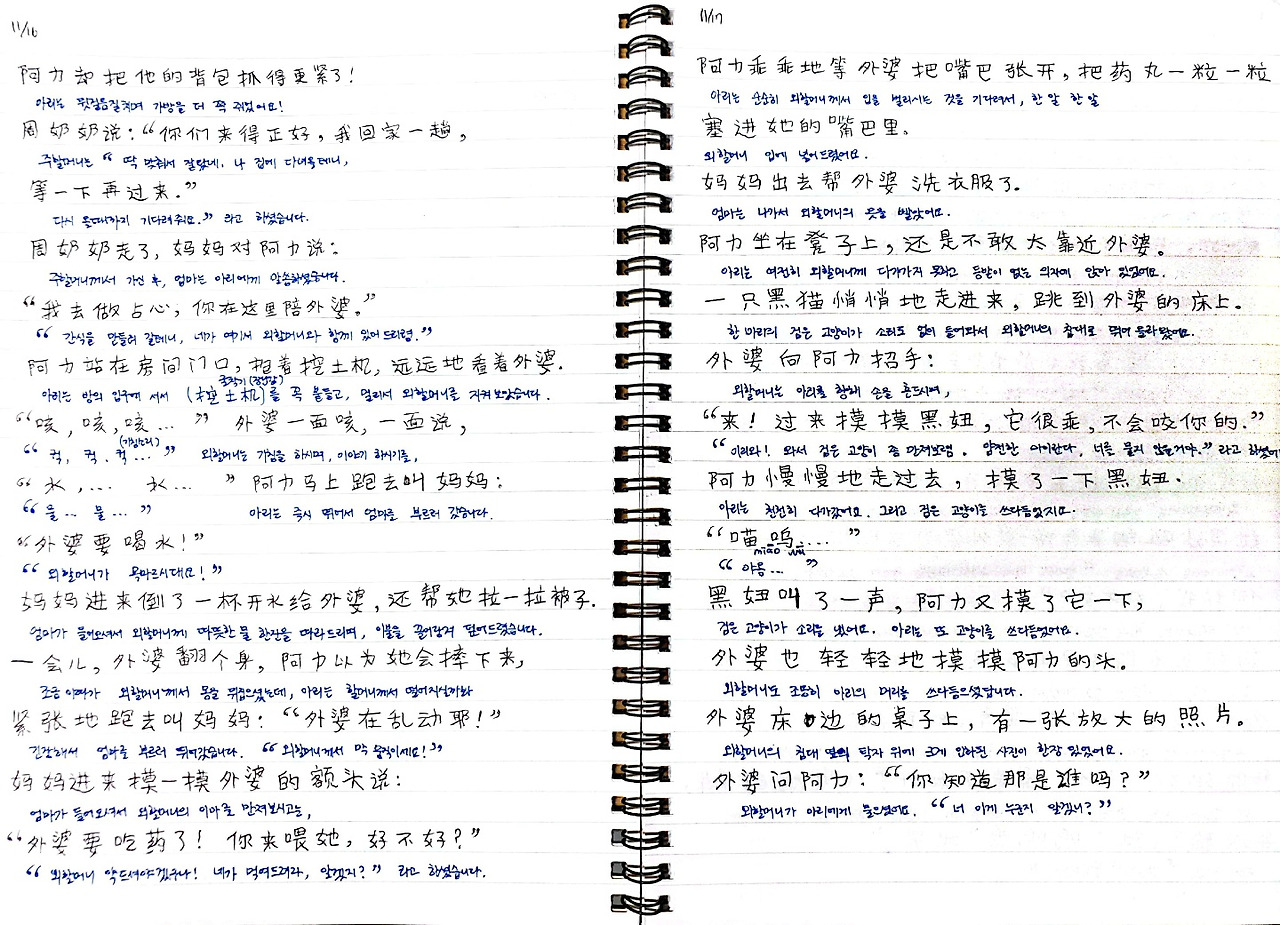 11/16
阿力却把他的背包抓得更紧了!
아리는 뒷걸음질치며 가방을 더 꽉 쥐었어요!
周奶奶说:“你们来得正好,我回家一趟,
주할머니는 “ 딱 맞춰서 잘왔네. 나 집에 다녀올테니,
等一下再过来.”
다시 올때까지 기다려줘요.” 라고 하셨습니다.
周奶奶走了, 妈妈对阿力说:
주할머니께서 가신 후, 엄마는 아리에게 말씀하셨습니다.
“我去做点心, 你在这里陪外婆。”
“ 간식을 만들러 갈테니, 네가 여기서 외할머니와 함께 있어 드리렴.”
阿力站在房间门口, 抱着挖土机, 远远地看着外婆.
굴착기(장난감)
아리는 방의 입구에 서서 (挖土机)를 꼭 붙들고, 멀리서 외할머니를 지켜보았습니다.
“咳, 咳, 咳… ” 外婆一面咳, 一面说,
(기침소리)
“ 컥, 컥, 컥 … ” 외할머니는 기침을 하시며, 이야기 하시기를,
“ 水, … 水… ” 阿力马上跑去叫妈妈:
“ 물 … 물 … ” 아리는 즉시 뛰어서 엄마를 부르러 갔습니다.
“外婆要喝水!”
“ 외할머니가 목마르시대요! ”
妈妈进来倒了一杯开水给外婆, 还帮她拉一拉被子.
엄마가 들어오셔서 외할머니께 따뜻한 물 한잔을 따라드리며, 이불을 끌어당겨 덮어드렸습니다.
一会儿, 外婆翻个身, 阿力以为她会摔下来,
조금 이따가 외할머니께서 몸을 뒤집으셨는데, 아리는 할머니께서 떨어지실까봐
紧张地跑去叫妈妈: “外婆在乱动耶!”
긴장해서 엄마를 부르러 뛰어갔습니다. “외할머니께서 막 움직이세요!”
妈妈进来摸一摸外婆的额头说:
엄마가 들어오셔서 외할머니의 이마를 만져보시고는,
“外婆要吃药了! 你来喂她, 好不好?”
“ 외할머니 약드셔야겠구나! 네가 먹여드려라, 알겠지? ” 라고 하셨습니다.
11/17
阿力乖乖地等外婆把嘴巴张开, 把药丸一粒一粒
아리는 순순히 외할머니께서 입을 벌리시는 것을 기다려서, 한 알 한 알
塞进她的嘴巴里.
외할머니 입에 넣어드렸어요.
妈妈出去帮外婆洗衣服了.
엄마는 나가서 외할머니의 옷을 빨았어요.
阿力坐在凳子上, 还是不敢太靠近外婆。
아리는 여전히 외할머니께 다가가지 못하고 등받이 없는 의자에 앉아 있었어요.
一只黑猫悄悄地走进来, 跳到外婆的床上.
한 마리의 검은 고양이가 소리도 없이 들어와서 외할머니의 침대로 뛰어 올라왔어요.
外婆向阿力招手:
외할머니는 아리를 향해 손을 흔드시며,
“来! 过来摸摸黑妞, 它很乖, 不会咬你的.”
“ 이리와! 와서 검은 고양이 좀 만져보렴. 얌전한 아이란다, 너를 물지 않을거야.” 라고 하셨어
阿力慢慢地走过去, 摸了一下黑妞.
아리는 천천히 다가갔어요. 그리고 검은 고양이를 쓰다듬었지요.
“喵呜… ”
miāo wū
“ 야옹 … ”
黑妞叫了一声, 阿力又摸了它一下,
검은 고양이가 소리를 냈어요. 아리는 또 고양이를 쓰다듬었어요.
外婆也轻轻地摸摸阿力的头.
외할머니도 조용히 아리의 머리를 쓰다듬으셨답니다.
外婆床边的桌子上, 有一张放大的照片.
외할머니의 침대 옆의 탁자 위에 크게 인화된 사진이 한장 있었어요.
外婆问阿力: “你知道那是谁吗?”
외할머니가 아리에게 물으셨어요. “ 너 이게 누군지 알겠니? ”